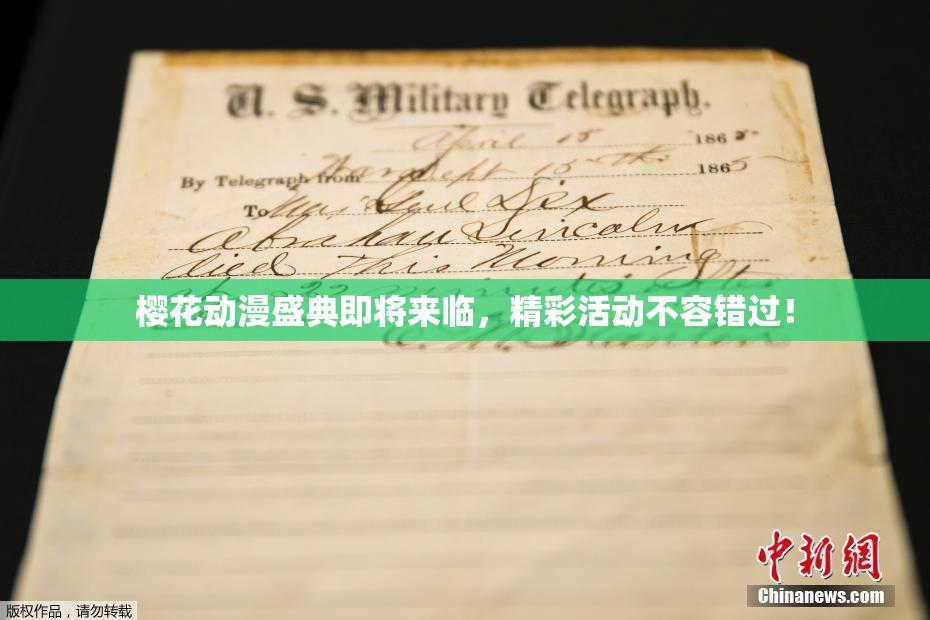 U. S. Military Telegraph.
April 15 1865
By Telegraph from War Dept 15th 1865
To Maj Genl Dix
Abraham Lincoln
died This Morning
22 minutes after
樱花动漫盛典即将来临，精彩活动不容错过！
E. M. Stanton
中新网
Chinanews.com
版权作品，请勿转载